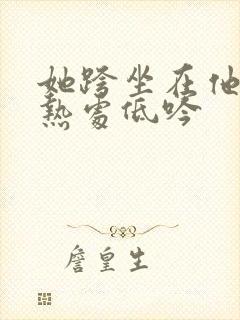 她跨坐在他
熱處低吟
詹皇生